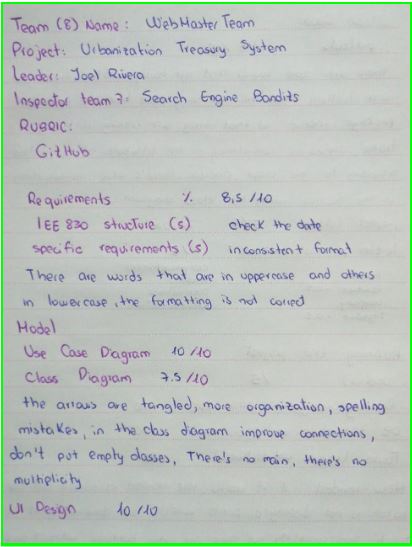 Team (8) Name: WebMaster Team
Project: Urbanization Treasury System
Leader: Joel Rivera
Inspector team 7: Search Engine Bandits
RUBRIC:
GitHub
Requirements % 8,5 /10
IEE 830 structure (s) check the date
specific requirements (s) inconsistent format
There are words that are in uppercase and others
in lowercase, the formatting is not correct
Model
Use Case Diagram 10 /10
Class Diagram 7.5 /10
the arrows are tangled, more organization, spelling
mistakes, in the class diagram improve connections,
don't put empty classes, There's no main, there's no
multiplicity
UI Design 10 /10